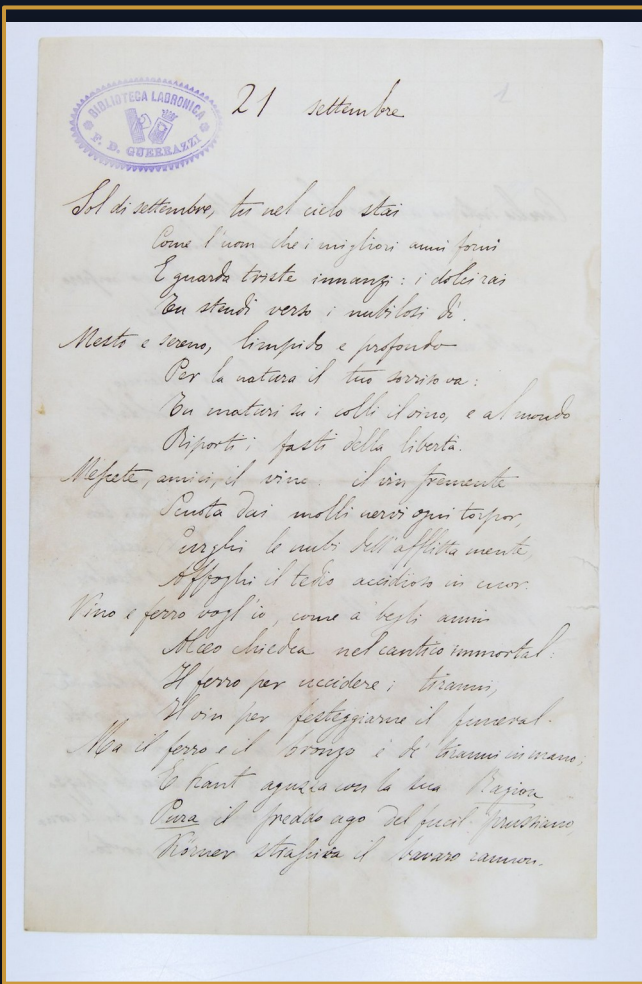 BIBLIOTECA LABRONICA
F. D. GUERRAZZI
21 settembre
1
Sol di settembre, tu nel cielo stai
Come l'uom che i migliori anni fornì
E guarda triste innanzi: i dolci rai
Tu stendi verso i nubilosi dì.
Mesto e sereno, limpido e profondo
Per la natura il tuo sorriso va:
Tu maturi su i colli il vino, e al mondo
Riporti i fasti della libertà.
Mescete, amici, il vino. il vin fremente
Scuota dai molli nervi ogni torpor,
Purghi le nubi dell'afflitta mente,
Affoghi il tedio accidioso in cuor.
Vino e ferro vogl'io, come a' begli anni
Alceo chiedea nel cantico immortal:
Il ferro per uccidere i tiranni,
Il vin per festeggiarne il funeral.
Ma il ferro e il bronzo è de' tiranni in mano;
E Kant aguzza con la sua Ragion
Pura il freddo ago del fucil prussiano,
Körner strascica il bavaro cannon.